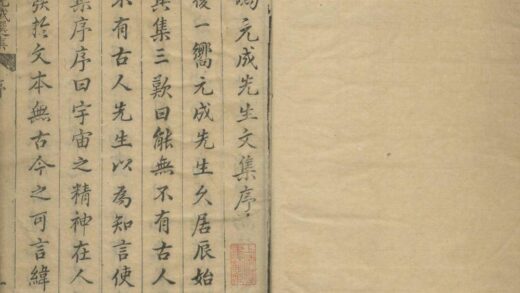 馮元成先生文集序
後一嚮元成先生久居辰始
其集三歎曰能無不有古人
不有古人先生以為知言使
集序序曰宇宙之精神在人
張於文本無古今之可言緯